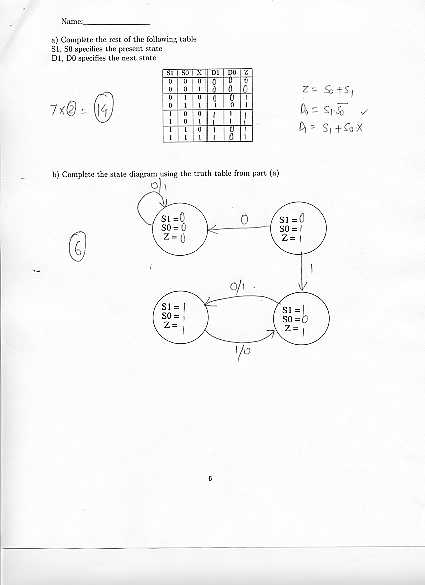 Name:
a) Complete the rest of the following table
S1, S0 specifies the present state
D1, D0 specifies the next state
S1 S0 X D1 D0 Z
0 0 0 0 0 0
0 0 1 0 0 0
0 1 0 0 0 1
0 1 1 1 0 1
1 0 0 1 1 1
1 0 1 1 1 1
1 1 0 1 0 1
1 1 1 1 0 1
Z = S0 + S1
D0 = S1 S0
D1 = S1 + S0 X
7x2 = 14
b) Complete the state diagram using the truth table from part (a)
0/1
S1 = 0
S0 = 0
Z = 0
0
S1 = 0
S0 = 1
Z = 1
6
1
0/1
S1 = 1
S0 = 1
Z = 1
S1 = 1
S0 = 0
Z = 1
1/0
6